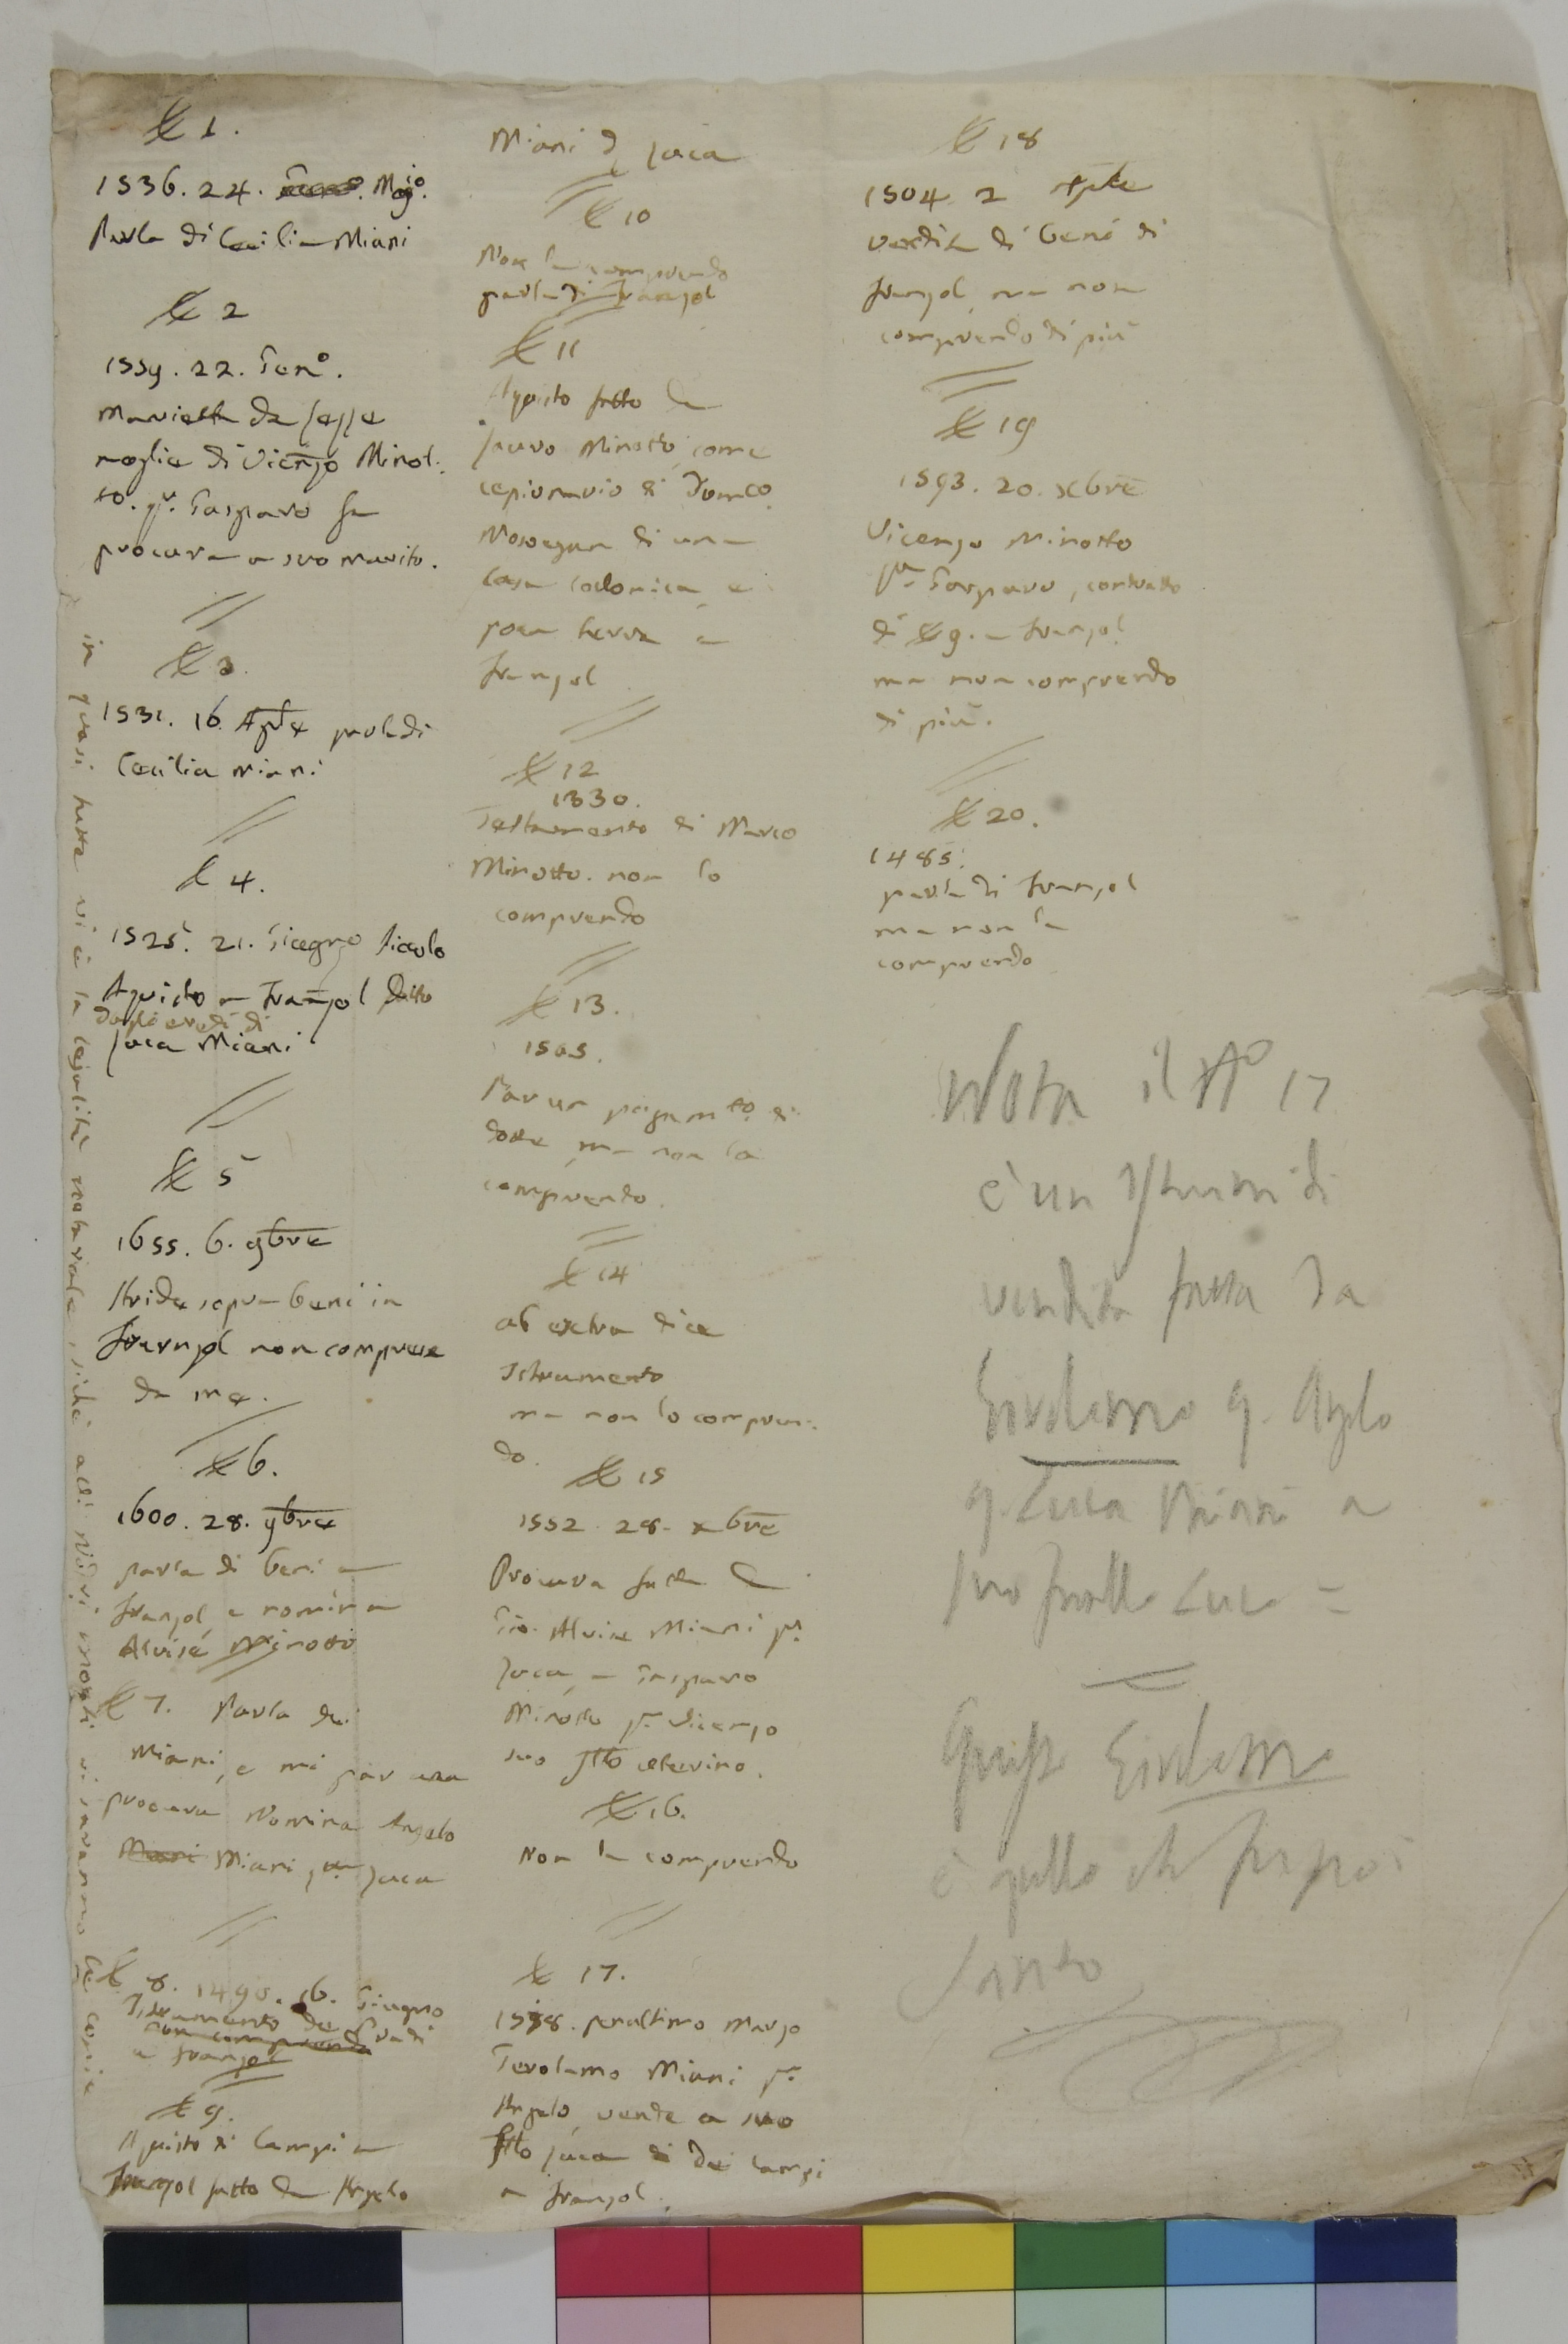 N 1.
1536. 24. Mag.o
Parla di Cecilia Miani
N 2
1559. 22. Gen.o
Marietta da Pesse
moglie di Vicenzo Minot:
to. q.m Gasparo fa
procura a suo marito.
N 3.
1531. 16. Aprle parla di
Cecilia Miani
N 4.
1525. 21. Giugno piccolo
Aquisto a Franzol fatto
dagli eredi di
Luca Miani
N 5
1655. 6. 9bre
Stride sopra beni in
Franzol non comprese
da me.
N 6.
1600. 28. 9bre
parla di beni a
Franzol e nomina
Alvise Minotto
N 7. Parla dei
Miani, e mi par una
procura Nomina Angelo
Miani q.m Luca
N 8. 1490. 16. Giugno
Istrumento de Pradi
non comprendo
a Franzol
N 9.
Aquisto di Campi a
Franzol fatto da Angelo
in quasi tutte vi è la legalità notarile, sichè alli vostri monti vi saranno le copie
Miani q Luca
N 10
Non la comprendo
parla di Franzol
N 11
Aquisto fatto da
Lauro Minotto come
cessionario di Dom.co
Nosegan di una
Casa Colonica e
poca terra a
Franzol
N 12
1330.
Testamento di Marco
Minotto. non lo
comprendo
N 13.
1505.
Par un pagam.to di
dotte, ma non la
comprendo.
N 14
ab extra dice
Istrumento
ma non lo compren:
do.
N 15
1552. 28. xbre
Procura fatta da
Gio. Alvise Miani q.m
Luca, a Gasparo
Minotto q.m Vicenzo
suo frllo uterino.
N 16.
Non la comprendo
N 17.
1538. penultimo Marzo
Gerolamo Miani q.m
Angelo vende a suo
frllo Luca dei Campi
a Franzol.
N 18
1504. 2 Aprle
vendita di beni di
Franzol ma non
comprendo di più
N 19
1593. 20. xbre
Vicenzo Minotto
q.m Gasparo, contratto
di N 9. a Franzol
ma non comprendo
di più.
N 20.
1485.
parla di Franzol
ma non la
comprendo
Nota il No 17
è un Istrum di
vendita fatta da
Girolamo q. Anzolo
q. Luca Miani a
suo fratello Luca =
Questo Girolamo
è quello che fu poi
Santo